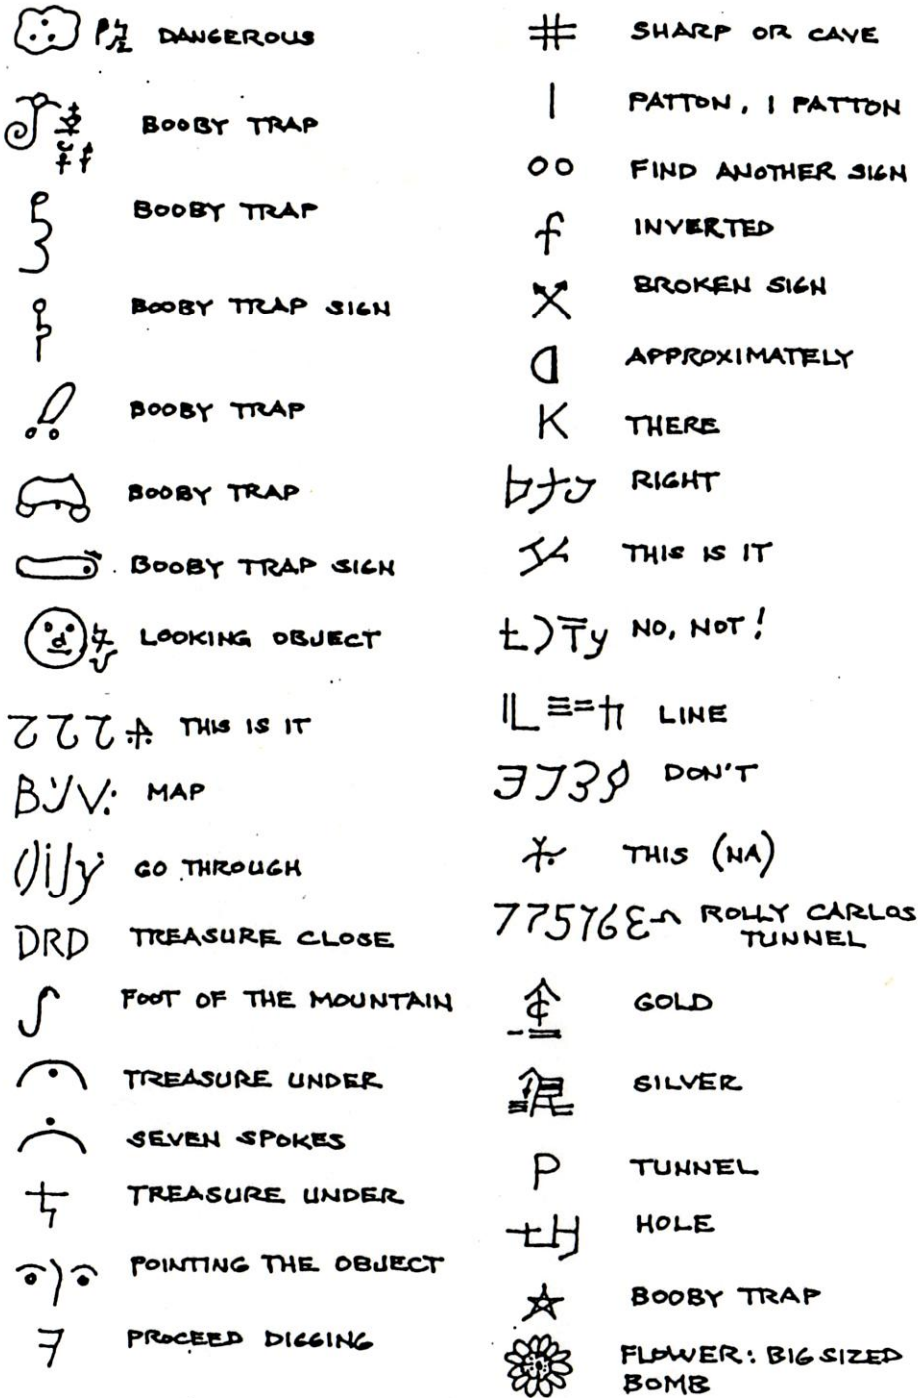 DANGEROUS
BOOBY TRAP
BOOBY TRAP
BOOBY TRAP SIGN
BOOBY TRAP
BOOBY TRAP
BOOBY TRAP SIGN
LOOKING OBJECT
THIS IS IT
MAP
GO THROUGH
DRD TREASURE CLOSE
FOOT OF THE MOUNTAIN
TREASURE UNDER
SEVEN SPOKES
TREASURE UNDER
POINTING THE OBJECT
PROCEED DIGGING
# SHARP OR CAVE
| PATTON, 1 PATTON
OO FIND ANOTHER SIGN
f INVERTED
BROKEN SIGN
D APPROXIMATELY
K THERE
RIGHT
THIS IS IT
NO, NOT!
LINE
DON'T
THIS (NA)
ROLLY CARLOS
TUNNEL
GOLD
SILVER
P TUNNEL
HOLE
BOOBY TRAP
FLOWER: BIG SIZED
BOMB